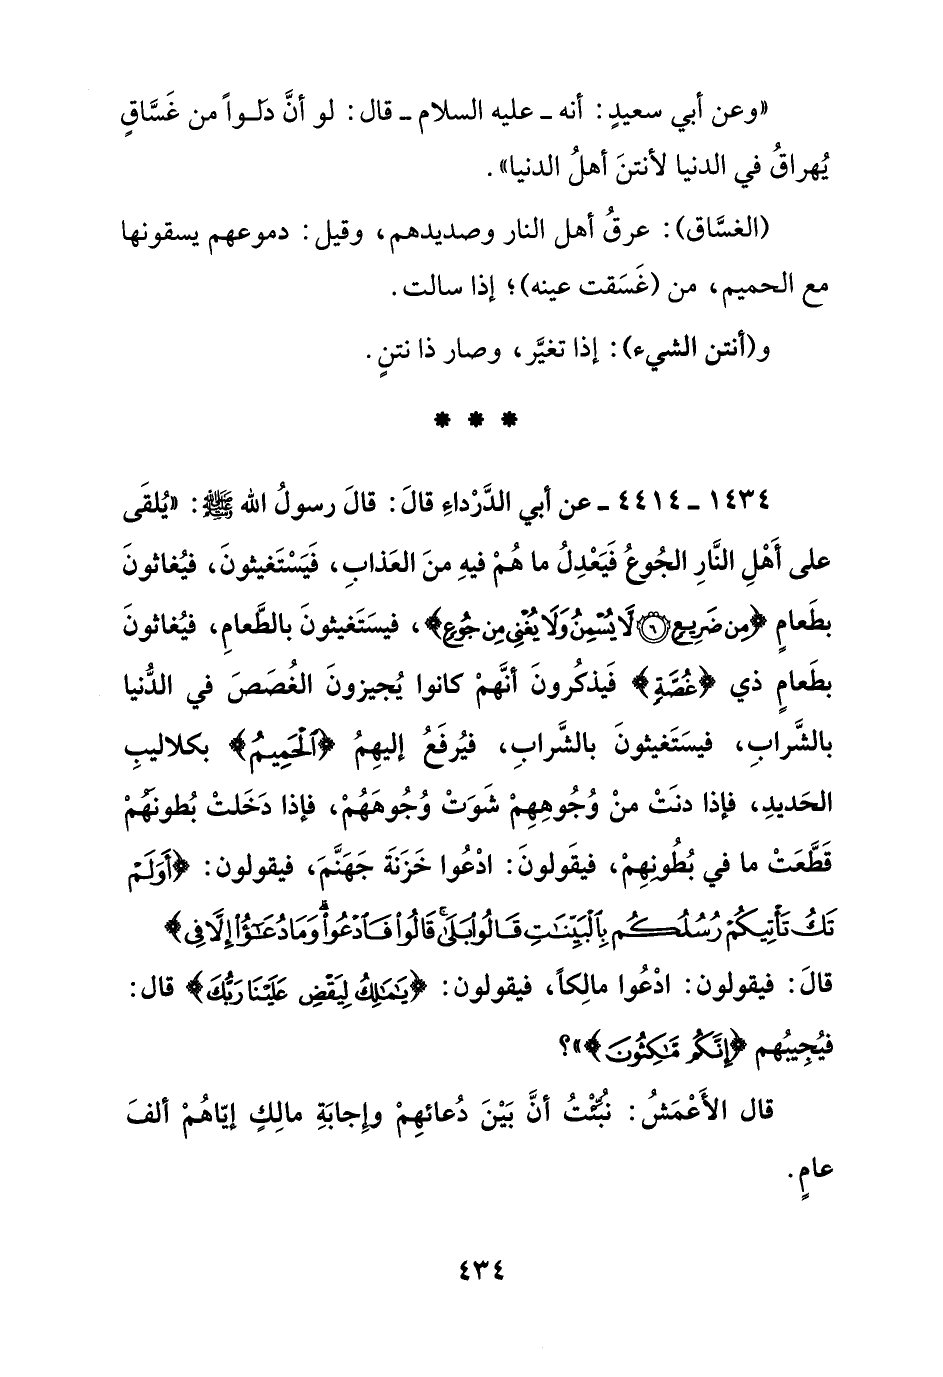 «وعن أبي سعيدٍ: أنه ـ عليه السلام ـ قال: لو أنَّ دَلـواً من غَسَّاقٍ
يُهراقُ في الدنيا لأنتنَ أهلُ الدنيا».
(الغسَّاق): عرقُ أهل النار وصديدهم، وقيل: دموعهم يسقونها
مع الحميم، من (غَسَقت عينه)؛ إذا سالت.
و(أنتن الشيء): إذا تغيَّر، وصار ذا نتنٍ.
* * *
١٤٣٤ ـ ٤٤١٤ ـ عن أبي الدَّرْداءِ قالَ: قالَ رسولُ الله ﷺ: «يُلقَى
على أَهْلِ النَّارِ الجُوعُ فَيَعْدِلُ ما هُمْ فيهِ منَ العَذابِ، فَيَسْتَغيثونَ، فيُغاثونَ
بطَعامٍ ﴿مِن ضَرِيعٍ ۝٦ لَّا يُسْمِنُ وَلَا يُغْنِي مِن جُوعٍ﴾، فيستَغيثونَ بالطَّعامِ، فيُغاثونَ
بطَعامٍ ذي ﴿غُصَّةٍ﴾ فَيذكُرونَ أنَّهمْ كانوا يُجيزونَ الغُصَصَ في الدُّنيا
بالشَّرابِ، فيستَغيثونَ بالشَّرابِ، فيُرفَعُ إليهِمُ ﴿ٱلْحَمِيمُ﴾ بكلاليبِ
الحَديدِ، فإذا دنَتْ منْ وُجُوهِهِمْ شَوَتْ وُجُوهَهُمْ، فإذا دَخَلتْ بُطونَهُمْ
قَطَّعَتْ ما في بُطُونِهِمْ، فيقَولونَ: ادْعُوا خَزَنَةَ جَهَنَّمَ، فيقولون: ﴿أَوَلَمْ
تَكُ تَأْتِيكُمْ رُسُلُكُم بِٱلْبَيِّنَٰتِ قَالُوا۟ بَلَىٰ ۚ قَالُوا۟ فَٱدْعُوا۟ ۗ وَمَا دُعَٰٓؤُا۟ إِلَّا فِي﴾
قالَ: فيقولون: ادْعُوا مالِكاً، فيقولون: ﴿يَٰمَٰلِكُ لِيَقْضِ عَلَيْنَا رَبُّكَ﴾ قال:
فيُجِيبُهم ﴿إِنَّكُم مَّٰكِثُونَ﴾»؟
قال الأَعْمَشُ: نُبِّئْتُ أنَّ بَيْنَ دُعائهِمْ وإجابَةِ مالِكٍ إيّاهُمْ ألفَ
عامٍ.
٤٣٤